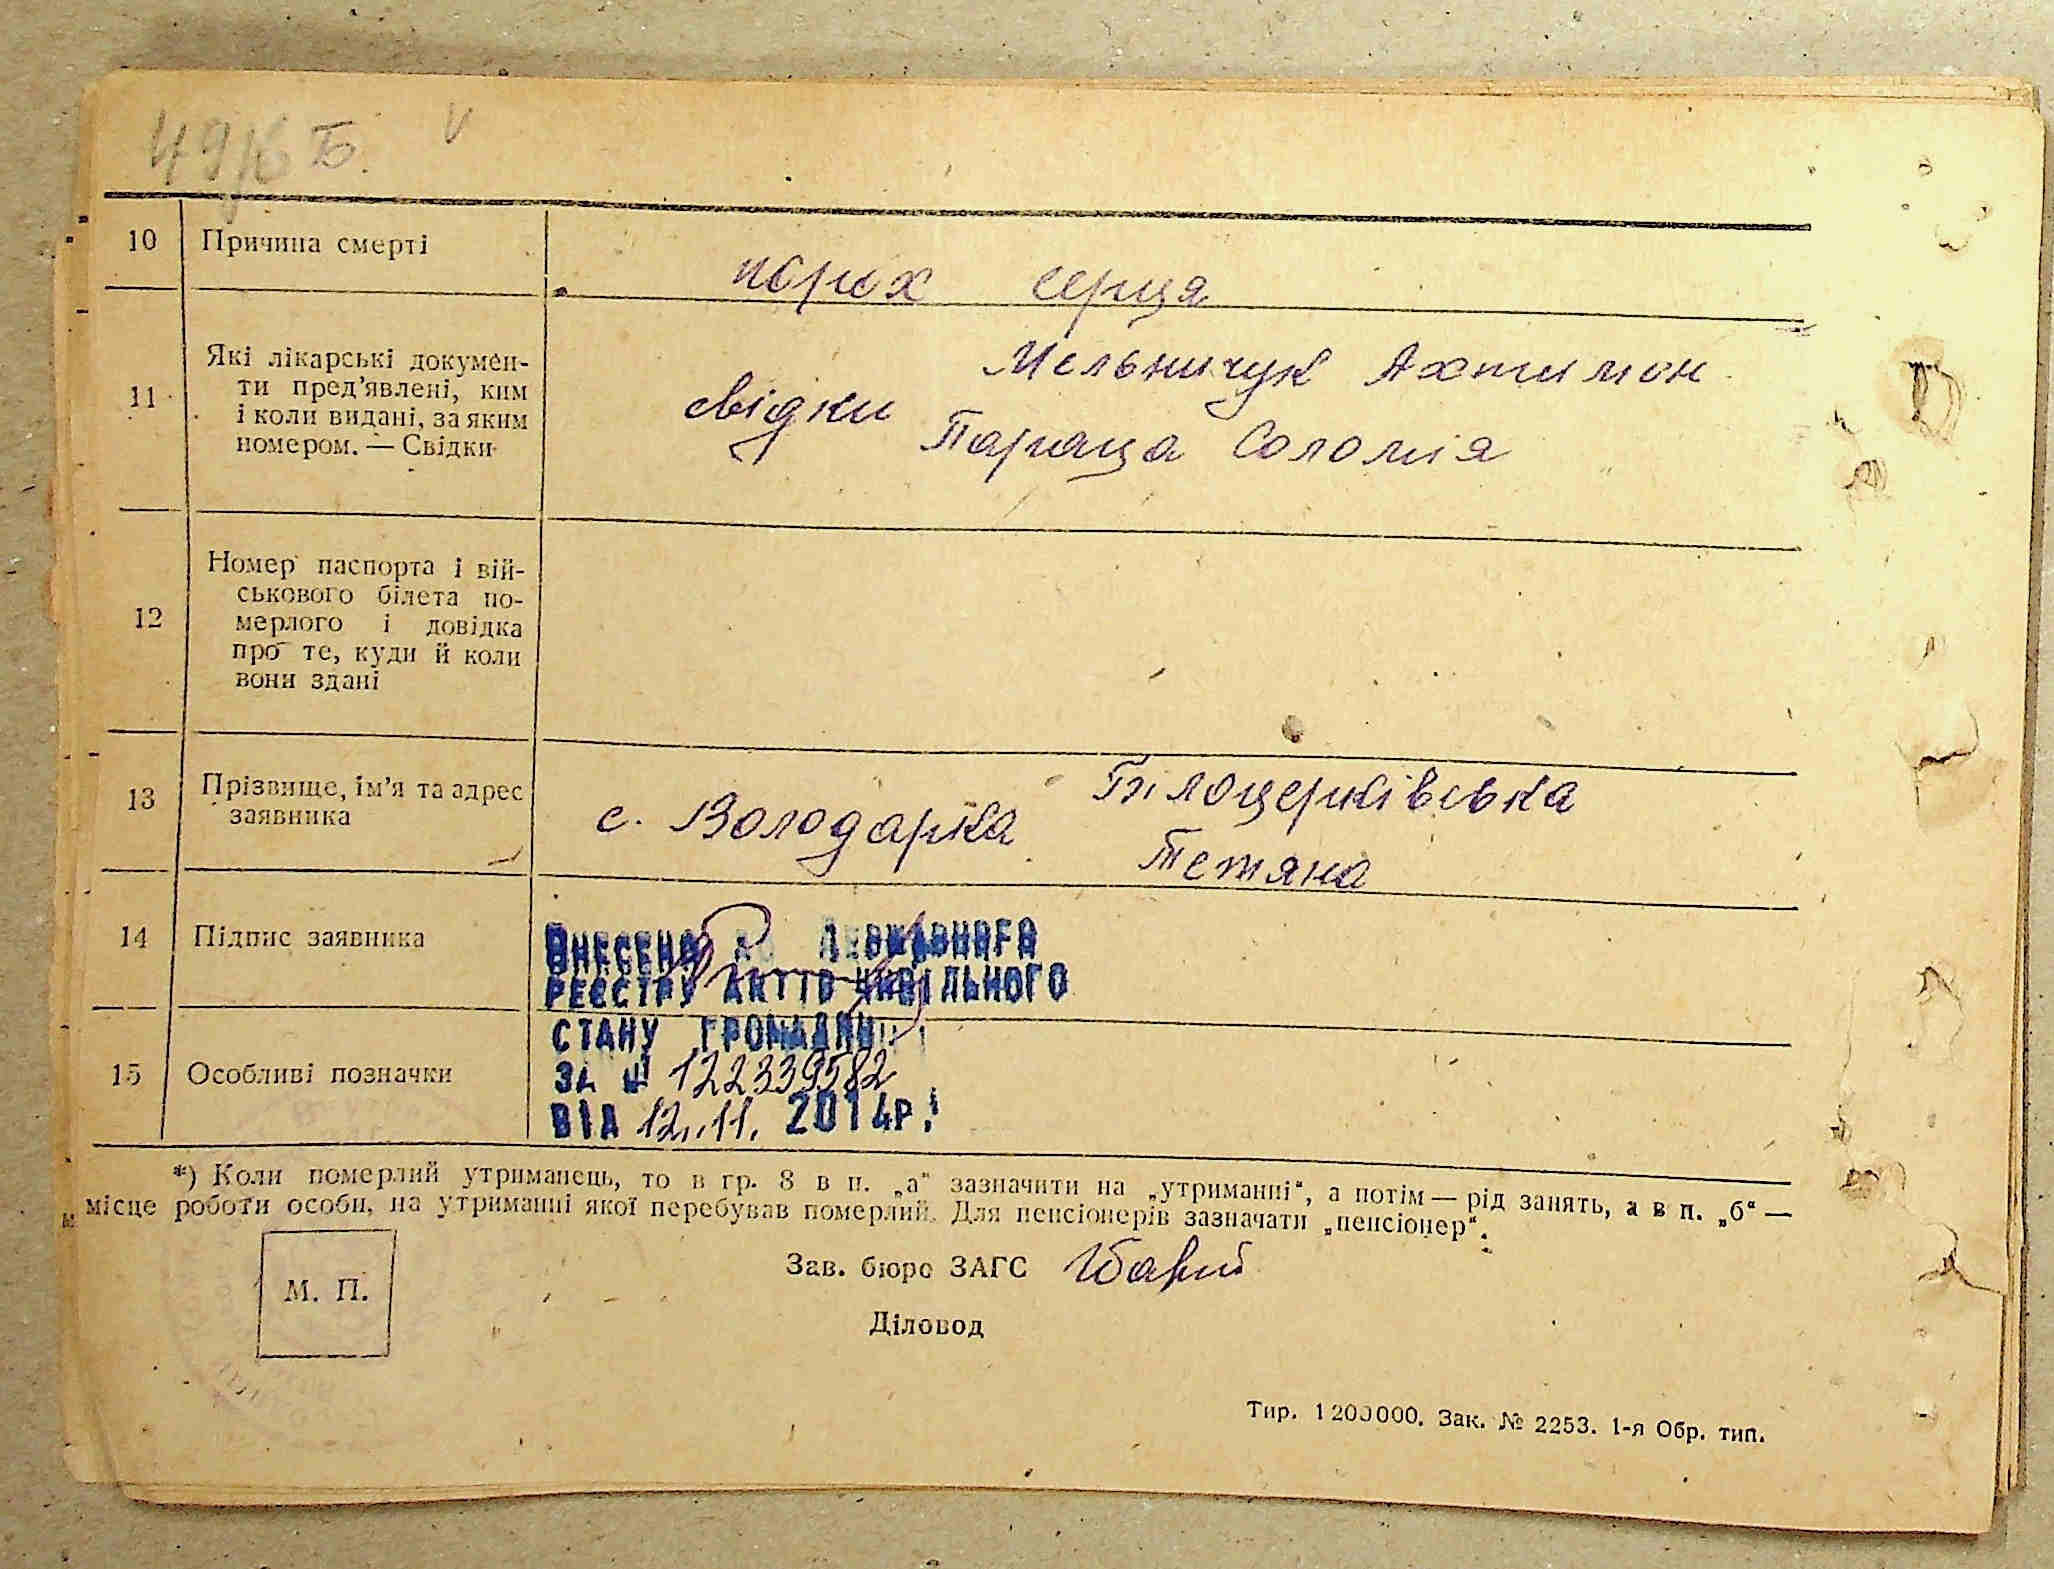 49 Б. v
10 Причина смерті порох серця
11 Які лікарські докумен-
ти пред'явлені, ким
і коли видані, за яким
номером. — Свідки
свідки Мельничук Ахтимон
Параща Соломія
12 Номер паспорта і вій-
ськового білета по-
мерлого і довідка
про те, куди й коли
вони здані
13 Прізвище, ім'я та адрес
заявника
с. Володарка Білоцерківська
Тетяна
14 Підпис заявника
ВНЕСЕНО ДО ДЕРЖАВНОГО
РЕЄСТРУ АКТІВ ЦИВІЛЬНОГО
СТАНУ ГРОМАДЯН
15 Особливі позначки
ЗА № 122339582
ВІД 12.11. 2014р.
*) Коли померлий утриманець, то в гр. 8 в п. „а" зазначити на „утриманні", а потім — рід занять, а в п. „б" —
місце роботи особи, на утриманні якої перебував померлий. Для пенсіонерів зазначати „пенсіонер".
М. П.
Зав. бюро ЗАГС
Діловод
Тир. 1200000. Зак. № 2253. 1-я Обр. тип.